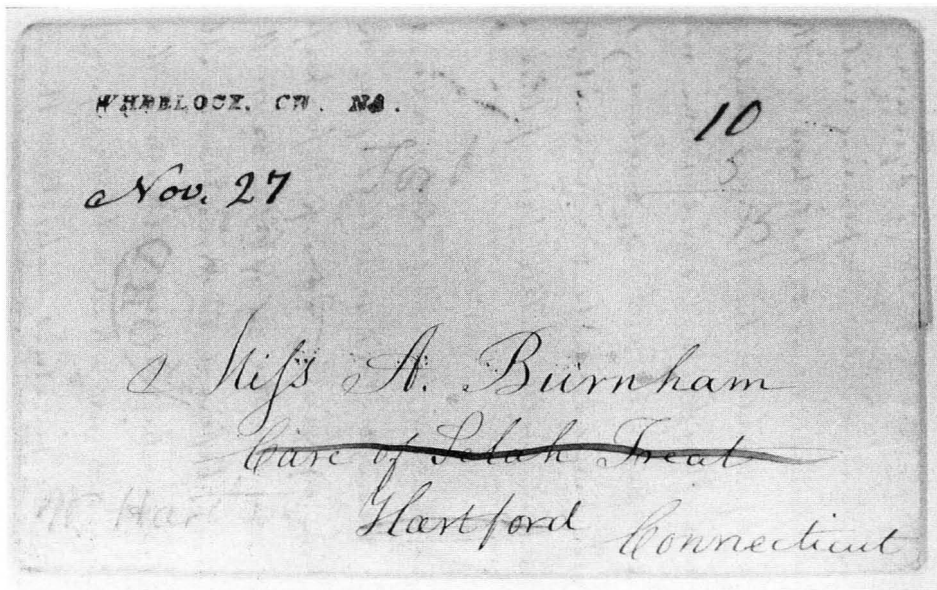 WHEELOCK. CW. NA.
10
5
15
Nov. 27
Miſs A. Burnham
Care of Selah Treat
Hartford
Connecticut